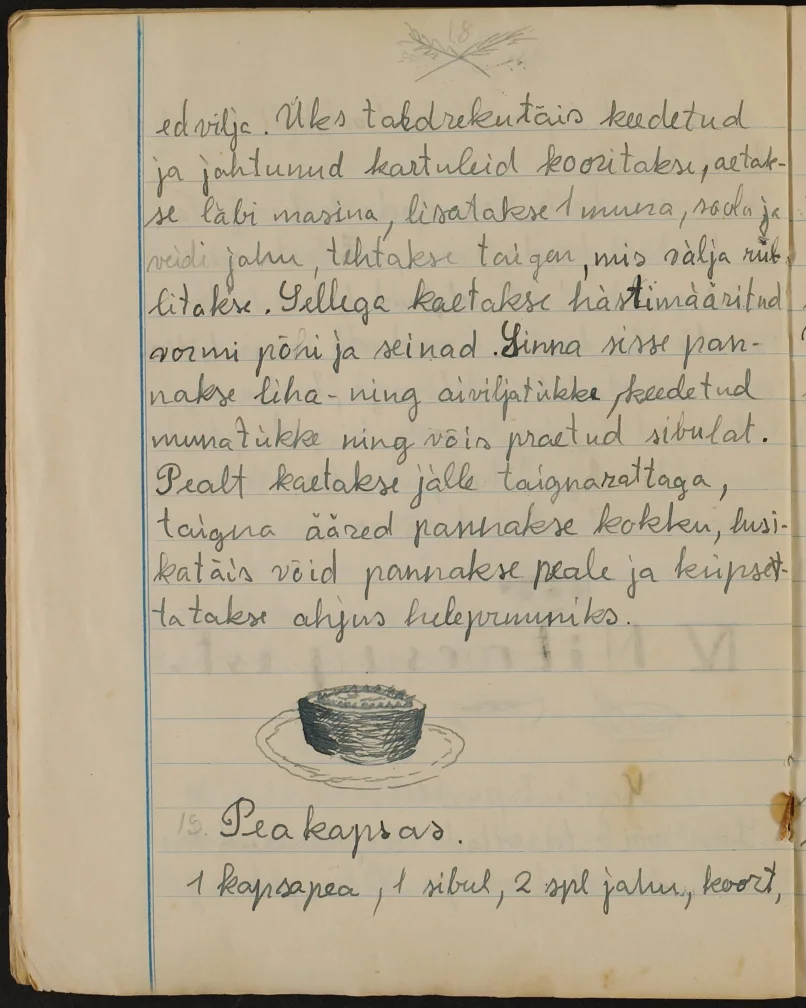 18
ed vilja. Üks taldrekutäis keedetud
ja jahtunud kartuleid kooritakse, aetak-
se läbi masina, lisatakse 1 muna, soola ja
veidi jahu, tehtakse taigen, mis välja rul-
litakse. Sellega kaetakse hästimääritud
vormi põhi ja seinad. Sinna sisse pan-
nakse liha- ning aiviljatükke, keedetud
munatükke ning võis praetud sibulat.
Pealt kaetakse jälle taignarattaga,
taigna ääred pannakse kokku, lusi-
katäis võid pannakse peale ja küpset-
tatakse ahjus helepruuniks.
15. Peakapsas.
1 kapsapea, 1 sibul, 2 spl jahu, koort,